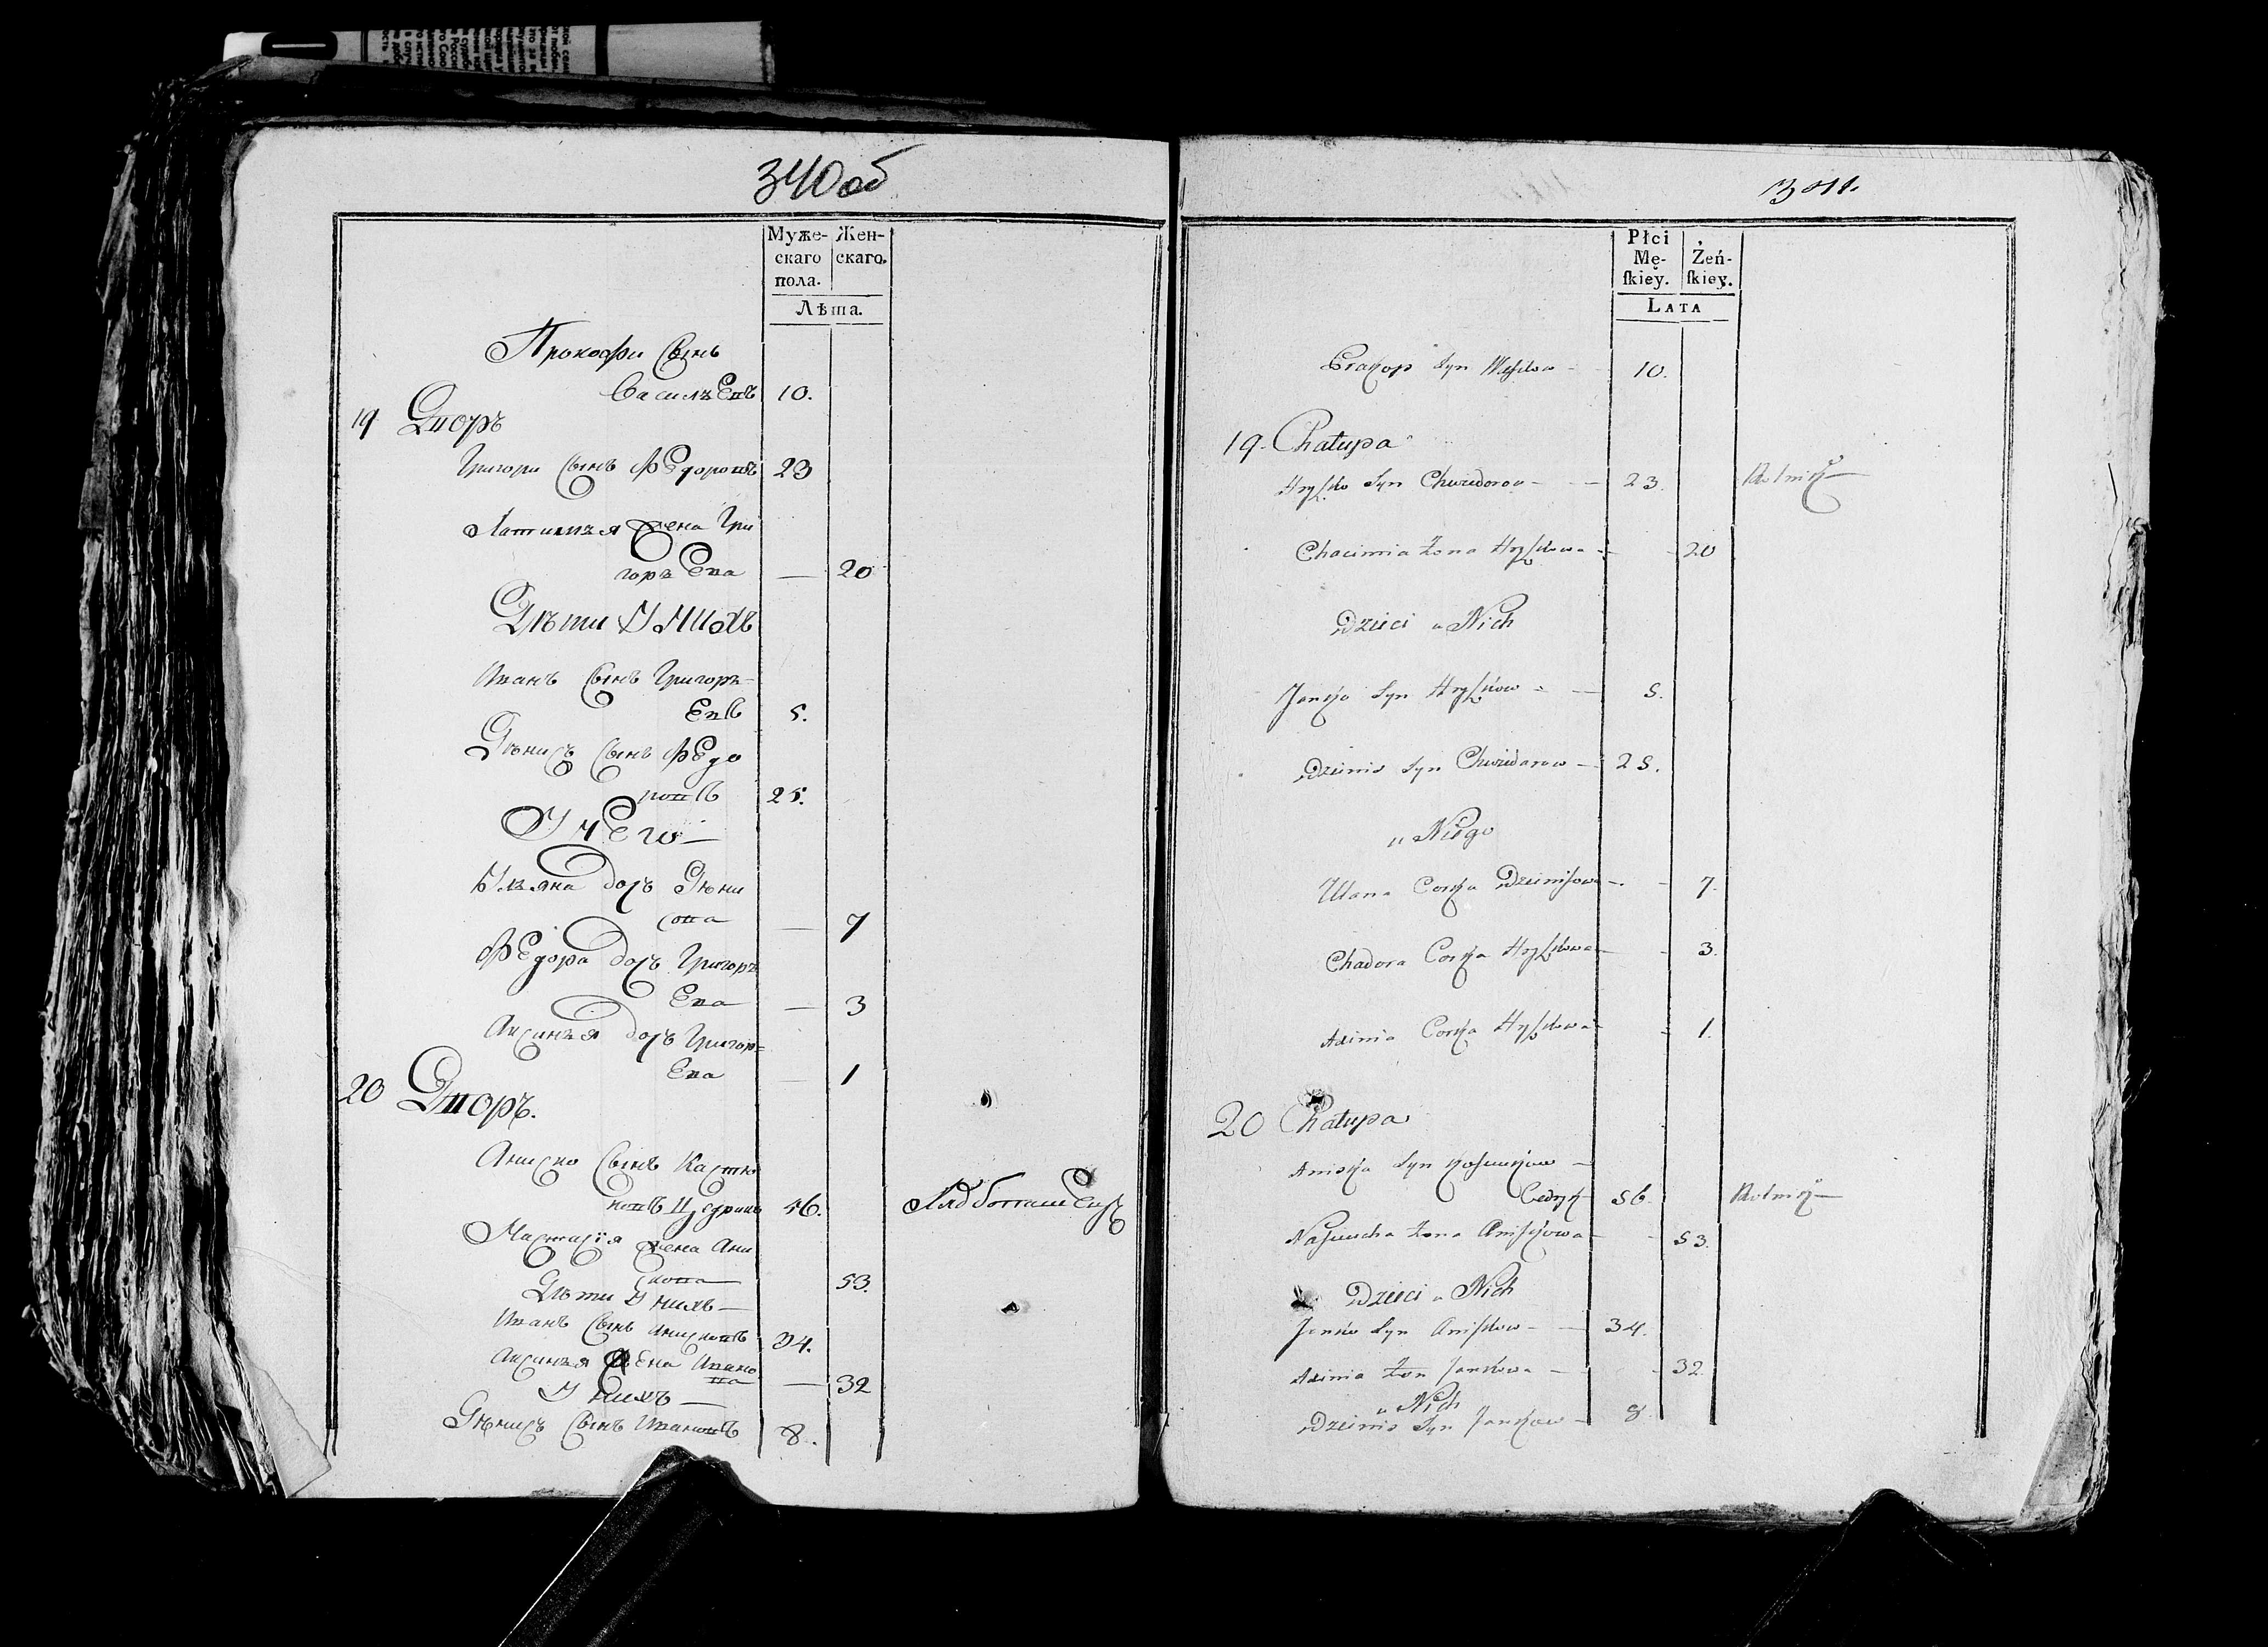 340 об
Муже- Жен-
скаго скаго.
пола.
Лѣта.
Прокофи Сынъ
Васильевъ 10.
19 Дворъ
Григори Сынъ Федоровъ 23
жена Гри
горьева — 20
Дѣти У нихъ
Иванъ Сынъ Григорь-
евъ 5.
Дѣнисъ Сынъ Федо
ровъ 25.
У него —
Ульяна дочь Дѣни
сова — 7
Федора дочь Григорь
ева — 3
Аксинья дочь Григорь=
ева — 1
20 Дворъ.
Аниско Сынъ Кастю
ковъ 56.
Настасія жена Ани
скова 53.
Дѣти У нихъ —
Иванъ Сынъ Анисковъ 34.
Аксинья жена Ивано
ва — 32
У нихъ —
Дѣнисъ Сынъ Ивановъ 8.
341.
Płci
Mę-
skiey. Żeń-
skiey.
LATA
Prakop Syn Wasilow 10.
19. Chałupa
Hryszko Syn Chwiedorow — 23. Rolnik —
Chacimia Żona Hryszkowa — 20
Dzieci u Nich
Janko Syn Hryszkow — 5.
Dzienis Syn Chwiedorow — 25.
u Niego
Ulana Corka Dzienisowa — 7.
Chadora Corka Hryszkowa — 3.
Axinia Corka Hryszkowa — 1.
20 Chałupa
Aniska Syn —
56. Rolnik —
Nastucha Żona Aniskowa — 53.
Dzieci u Nich
Janko Syn Aniskow — 34.
Axinia Żon Jankowa — 32
u Nich
Dzienis Syn Jankow — 8